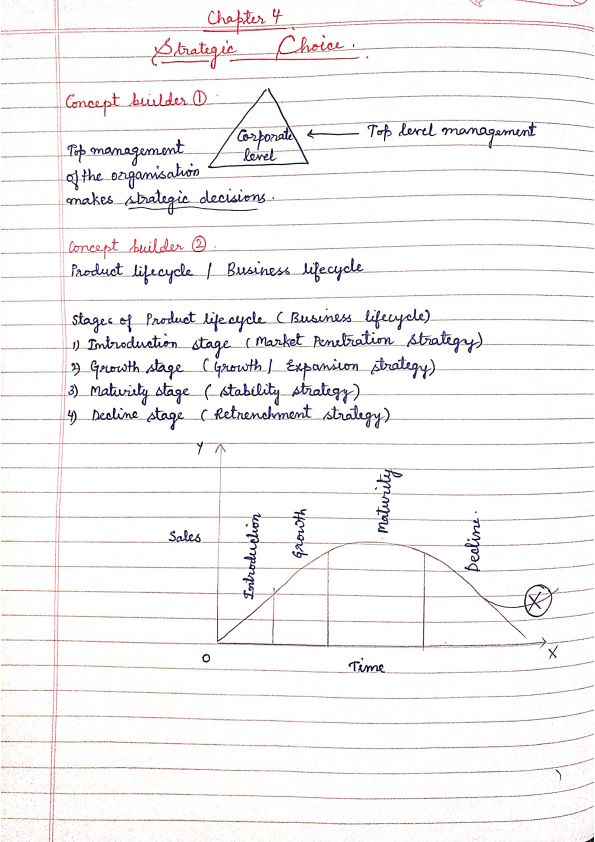 Chapter 4
Strategic Choice.
Concept builder ①
Corporate level
Top level management
Top management
of the organisation
makes strategic decisions.
Concept builder ②
Product lifecycle / Business lifecycle
Stages of Product lifecycle (Business lifecycle)
1) Introduction stage (Market Penetration strategy)
2) Growth stage (Growth / Expansion strategy)
3) Maturity stage (stability strategy)
4) Decline stage (Retrenchment strategy)
Y
Sales
Introduction
Growth
Maturity
Decline.
X
O
Time
X